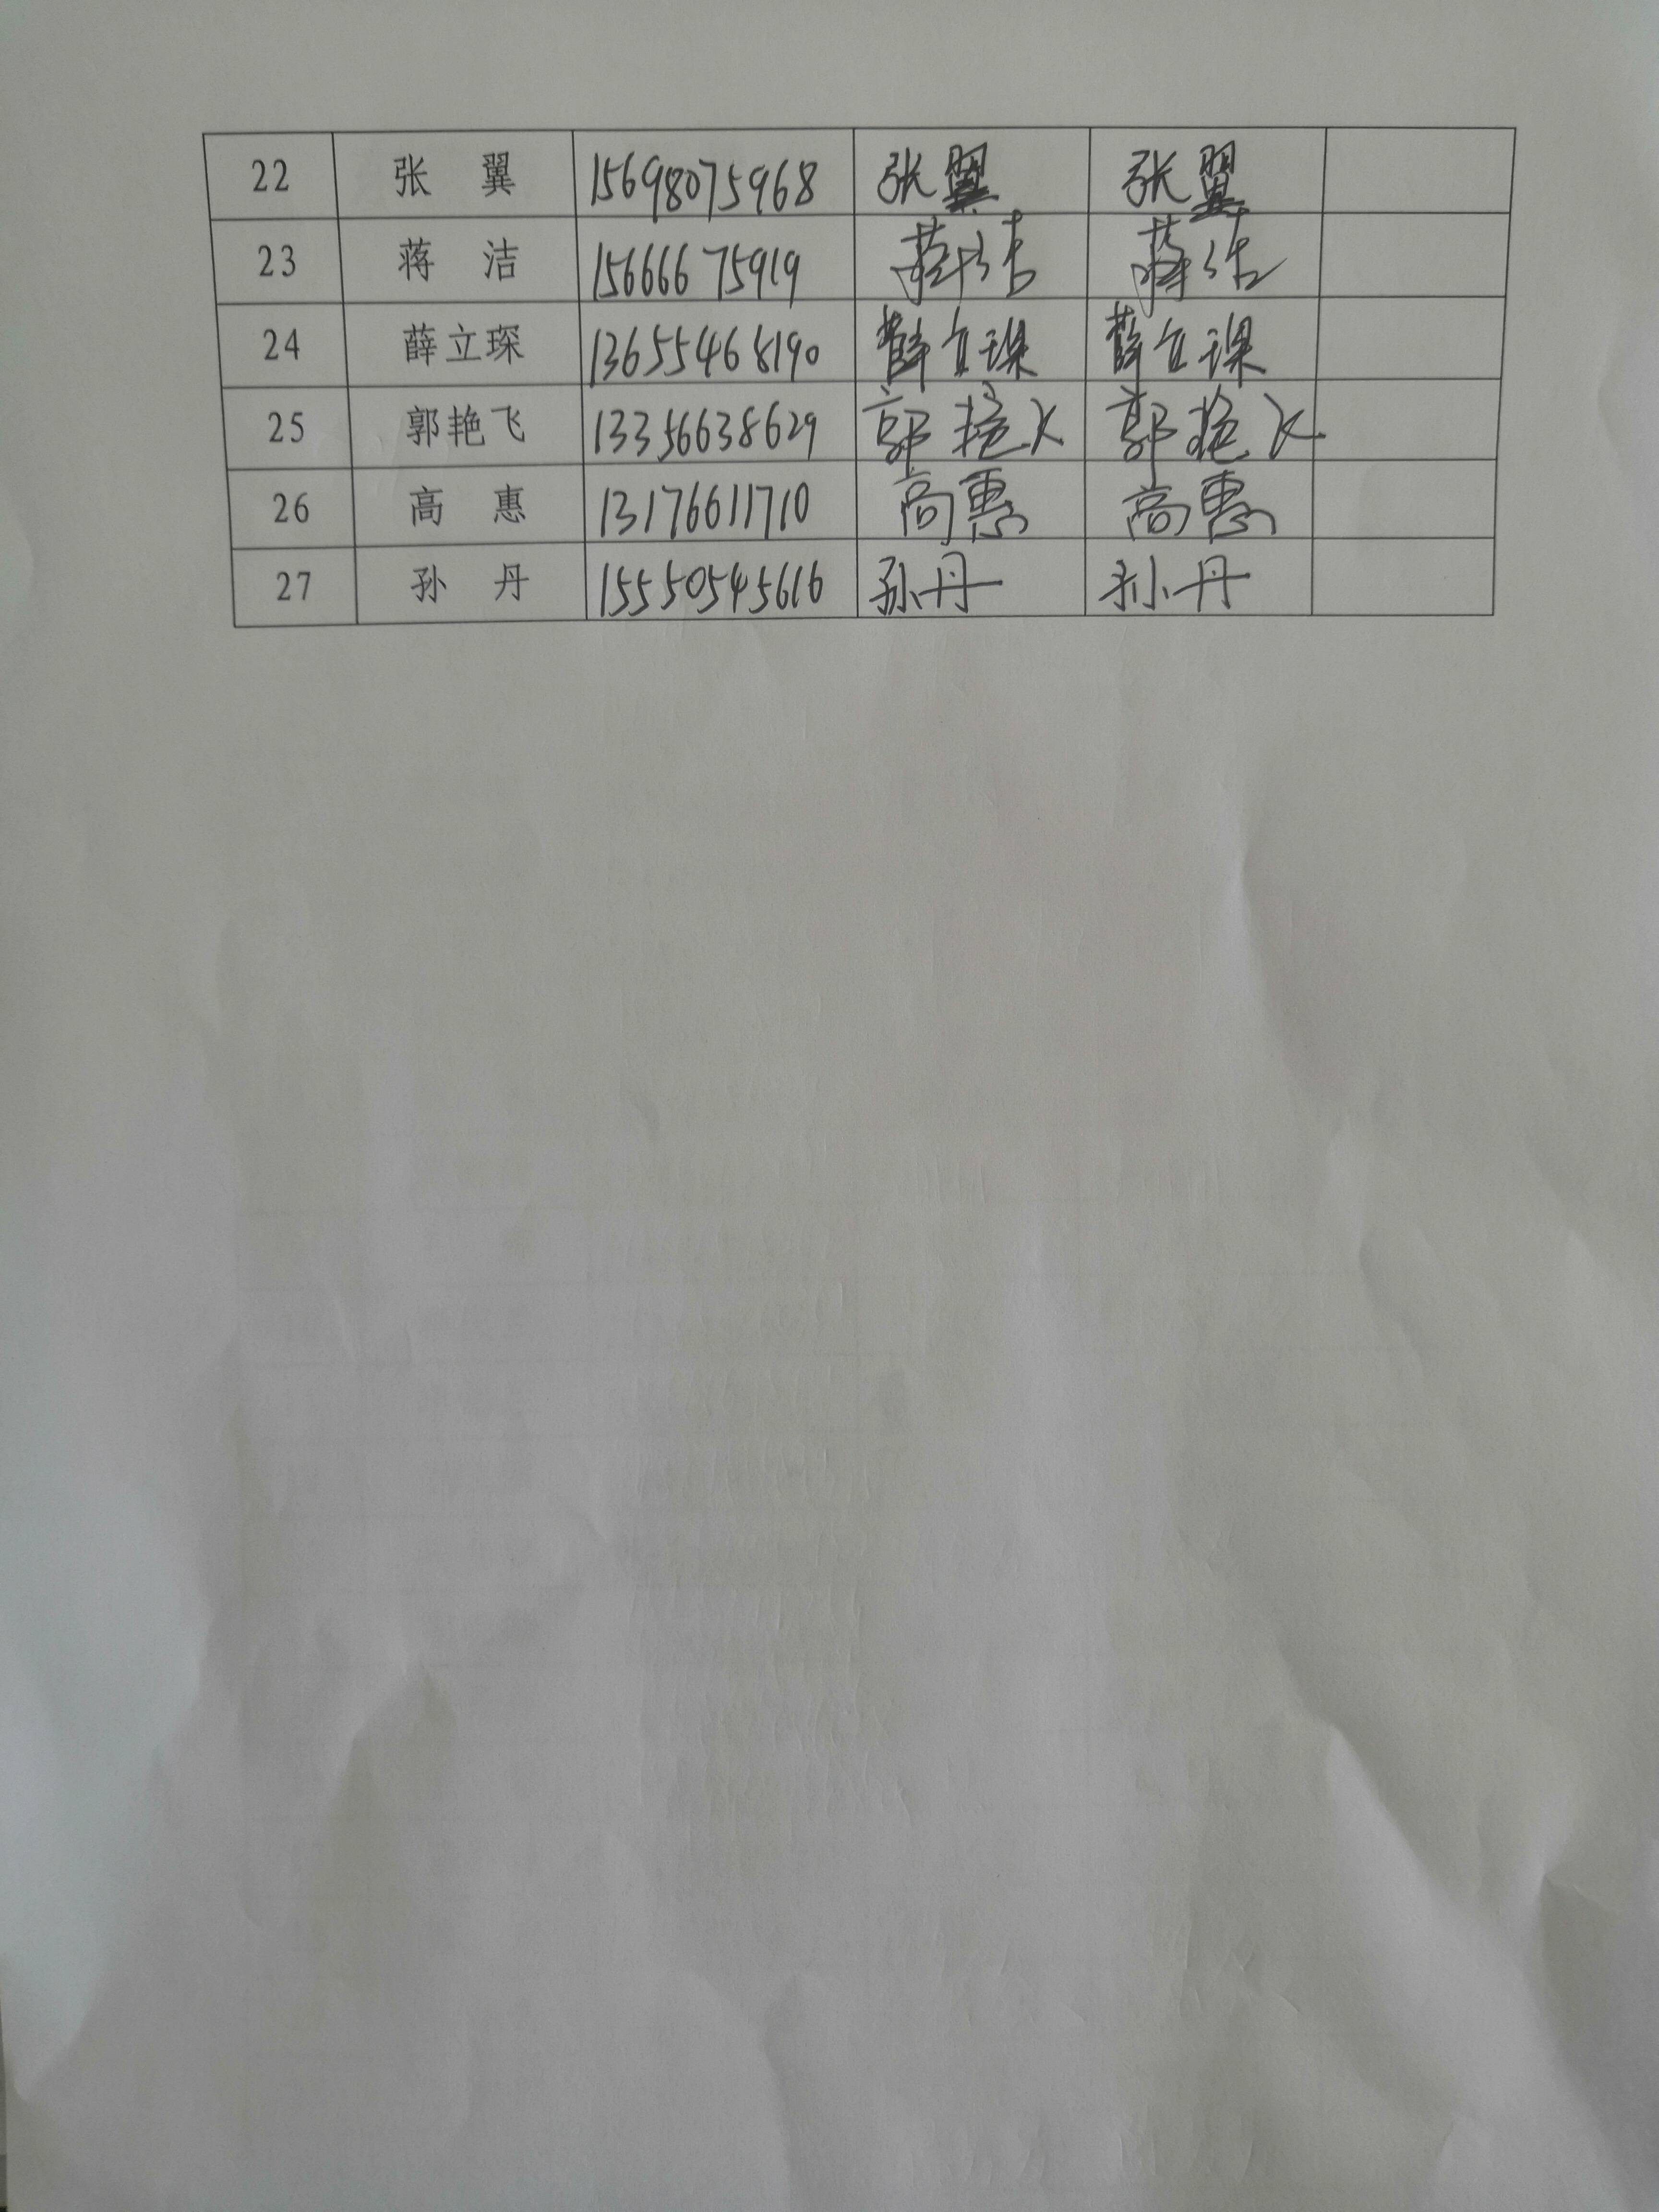 22 张 翼 15698075968 张翼 张翼
23 蒋 洁 15666675919 蒋洁 蒋洁
24 薛立琛 13655468190 薛立琛 薛立琛
25 郭艳飞 13356638629 郭艳飞 郭艳飞
26 高 惠 13176611710 高惠 高惠
27 孙 丹 15550545616 孙丹 孙丹